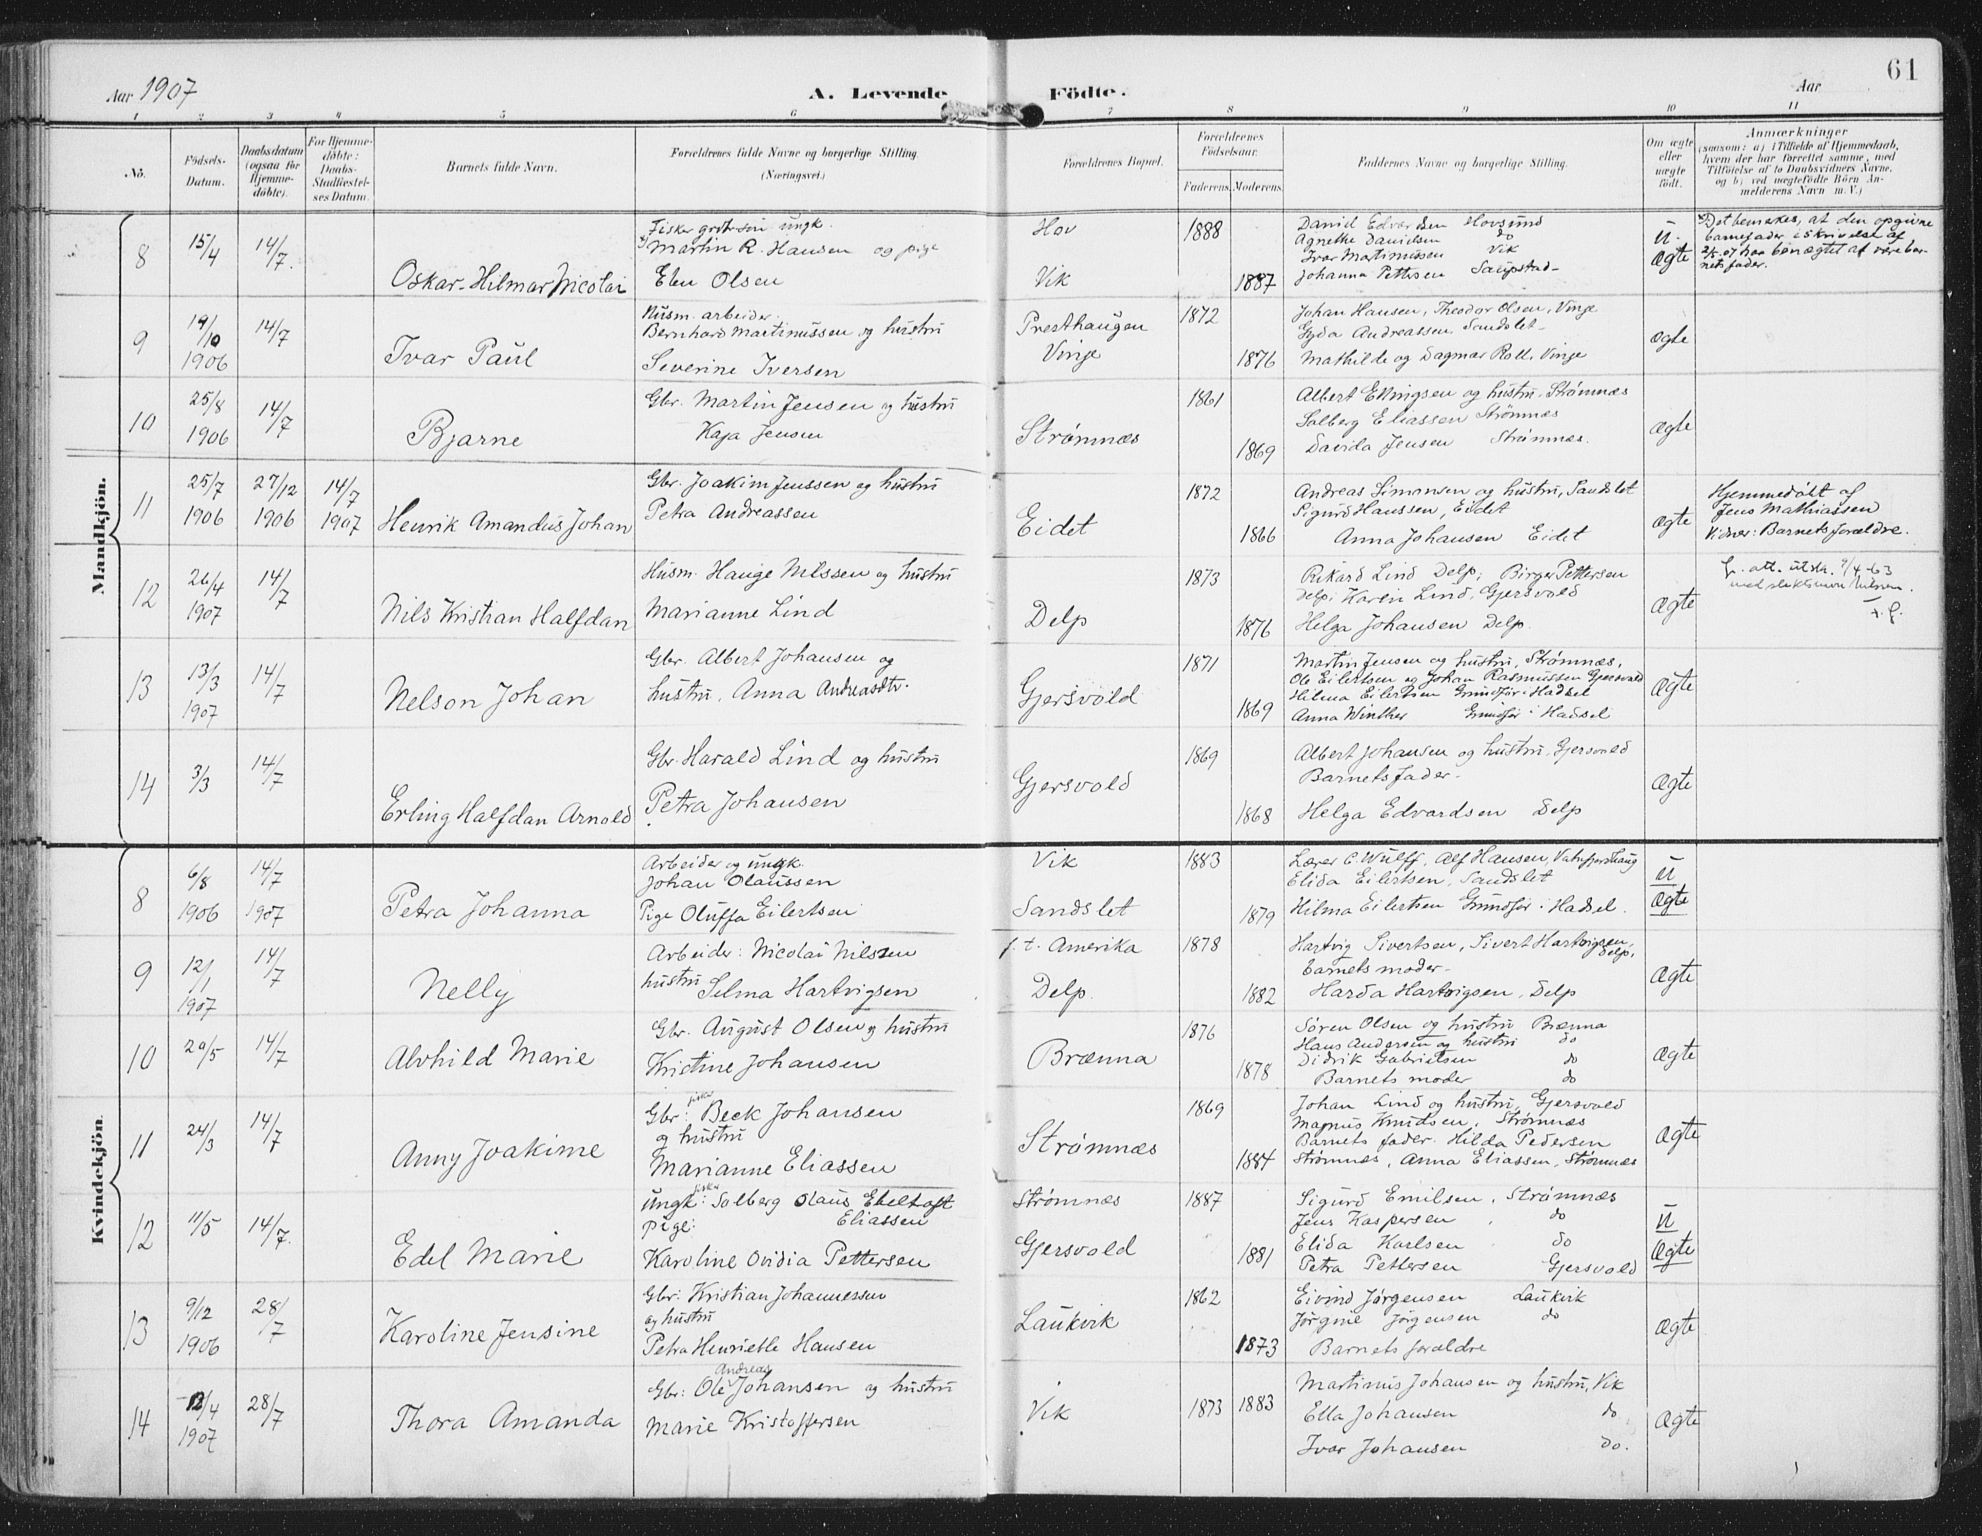 Aar 1907
A. Levende Födte.
Aar
61
1 2 3 4 5 6 7 8 9 10 11
No.
Födsels-Datum.
Daabsdatum (ogsaa for Hjemmedöbte).
For Hjemmedöbte: Daabs-Stadfæstelses Datum.
Barnets fulde Navn.
Forældrenes fulde Navne og borgerlige Stilling. (Næringsvei.)
Forældrenes Bopæl.
Forældrenes Födselsaar. Faderens. Moderens.
Faddernes Navne og borgerlige Stilling.
Om ægte eller uægte födt.
Anmærkninger (saasom: a) i Tilfælde af Hjemmedaab, hvem der har forrettet samme, med Tilföielse af to Daabsvidners Navne, og b) ved uægtefödte Börn Anmelderens Navn m. V.)
Mandkjön.
8 15/4 14/7. Oskar Hilmar Nicolai
Fisker ungk. Martin R. Hansen og pige
Elen Olsen
Hov
Vik
1888 1887
Daniel Edvardsen Hovsund
Agnethe Danielsen do
Ivar Martinussen Vik
Johanna Pettersen Saupstad
u ægte
Det bemerkes, at den opgivne
barnefader i skrivelse af
2/5 07 har benægtet at være bar-
nets fader.
9 19/10 1906 14/7 Ivar Paul
Husm. arbeider.
Bernhard Martinussen og hustru
Severine Iversen
Presthaugen
Vinje
1872 1876
Johan Hansen, Theodor Olsen, Vinje
Gyda Andreassen Sandslet
Mathilde og Dagmar Roll, Vinje
ægte
10 25/8 1906 14/7 Bjarne
Gbr. Martin Jensen og hustru
Kaja Jensen
Strømnæs
1861 1869
Albert Ellingsen og hustru, Strømnæs
Solberg Eliassen Strømnæs
Davida Jensen Strømnæs.
ægte
11 25/7 1906 27/12 1906 14/7 1907 Henrik Amandus Johan
Gbr. Joakim Jenssen og hustru
Petra Andreassen
Eidet
1872 1866
Andreas Simonsen og hustru, Sandslet
Sigurd Hanssen, Eidet
Anna Johansen Eidet
ægte
Hjemmedøbt af
Jens Mathiassen
Vidner: Barnets forældre.
12 26/4 1907 14/7 Nils Kristian Halfdan
Husm. Hauge Nilssen og hustru
Marianne Lind
Delp
1873 1876
Rikard Lind Delp; Birger Pettersen
Delp; Karen Lind, Gjersvold
Helga Johansen Delp
ægte
f. att. utst. 9/4-63
13 13/3 1907 14/7 Nelson Johan
Gbr. Albert Johansen og
hustru, Anna Andreasdtr.
Gjersvold
1871 1869
Martin Jensen og hustru, Strømnæs,
Ole Eilertsen og Johan Rasmussen Gjersvold
Hilma Eilertsen Grundfør i Hadsel
Anna Winther Grundfør i Hadsel
ægte
14 3/3 14/7 Erling Halfdan Arnold
Gbr. Harald Lind og hustru
Petra Johansen
Gjersvold
1869 1868
Albert Johansen og hustru, Gjersvold
Barnets fader
Helga Edvardsen Delp
ægte
Kvindekjön.
8 6/8 1906 14/7 1907 Petra Johanna
Arbeider og ungk.
Johan Olaussen
Pige Oluffa Eilertsen
Vik
Sandslet
1883 1879
Lærer C. Wulff, Alf Hansen, Vatnfjordhaug
Elida Eilertsen, Sandslet
Hilma Eilertsen Grundfør i Hadsel.
u ægte
9 12/1 1907 14/7 Nelly
Arbeider: Nicolai Nilssen
hustru Selma Hartvigsen
f. t. Amerika
Delp.
1878 1882
Hartvig Sivertsen, Sivert Hartvigsen, Delp,
barnets moder
Harda Hartvigsen, Delp
ægte
10 29/5 14/7 Alvhild Marie
Gbr. August Olsen og hustru
Kristine Johansen
Brænna
1876 1878
Søren Olsen og hustru Brænna
Hans Andersen og hustru do
Didrik Gabrielsen do
Barnets moder do
ægte
11 24/3 14/7 Anny Joakime
Gbr: fisker Beck Johansen
og hustru
Marianne Eliassen
Strømnæs
1869 1884
Johan Lind og hustru, Gjersvold
Magnus Knudsen, Strømnæs
Barnets fader. Hilda Pedersen
Strømnæs, Anna Eliassen, Strømnæs
ægte
12 11/5 14/7. Edel Marie
ungk: fisker Solberg Olaus Ebeltoft
Eliassen
pige:
Karoline Ovidia Pettersen
Strømnæs
Gjersvold
1887 1881
Sigurd Emilsen, Strømnæs
Jens Kaspersen do
Elida Karlsen do
Petra Pettersen Gjersvold
u ægte
13 9/12 1906 28/7 Karoline Jensine
Gbr: Kristian Johannessen
og hustru
Petra Henriette Hansen
Laukvik
1862 1873
Eivind Jørgensen Laukvik
Jørgine Jørgensen do
Barnets forældre
ægte
14 12/4 1907 28/7 Thora Amanda
Gbr: Ole Andreas Johansen og hustru
Marie Kristoffersen
Vik
1873 1883
Martinus Johansen og hustru, Vik
Ella Johansen do
Ivar Johansen do.
ægte